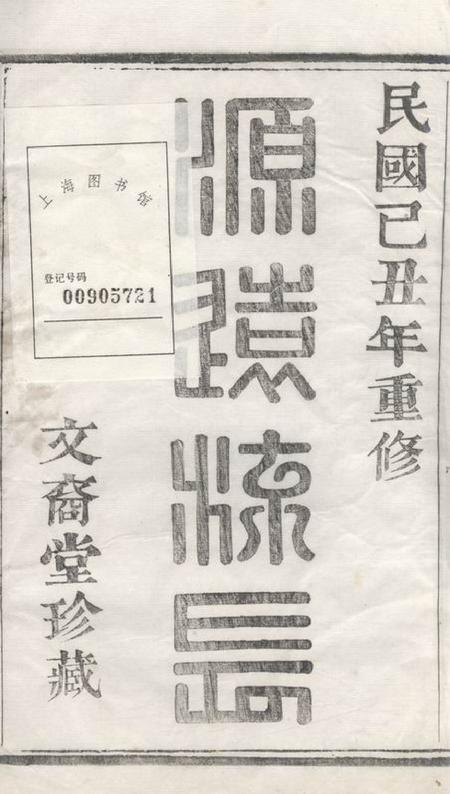 民國己丑年重修
源遠流長
文裔堂珍藏
上海图书馆
登记号码
00905721